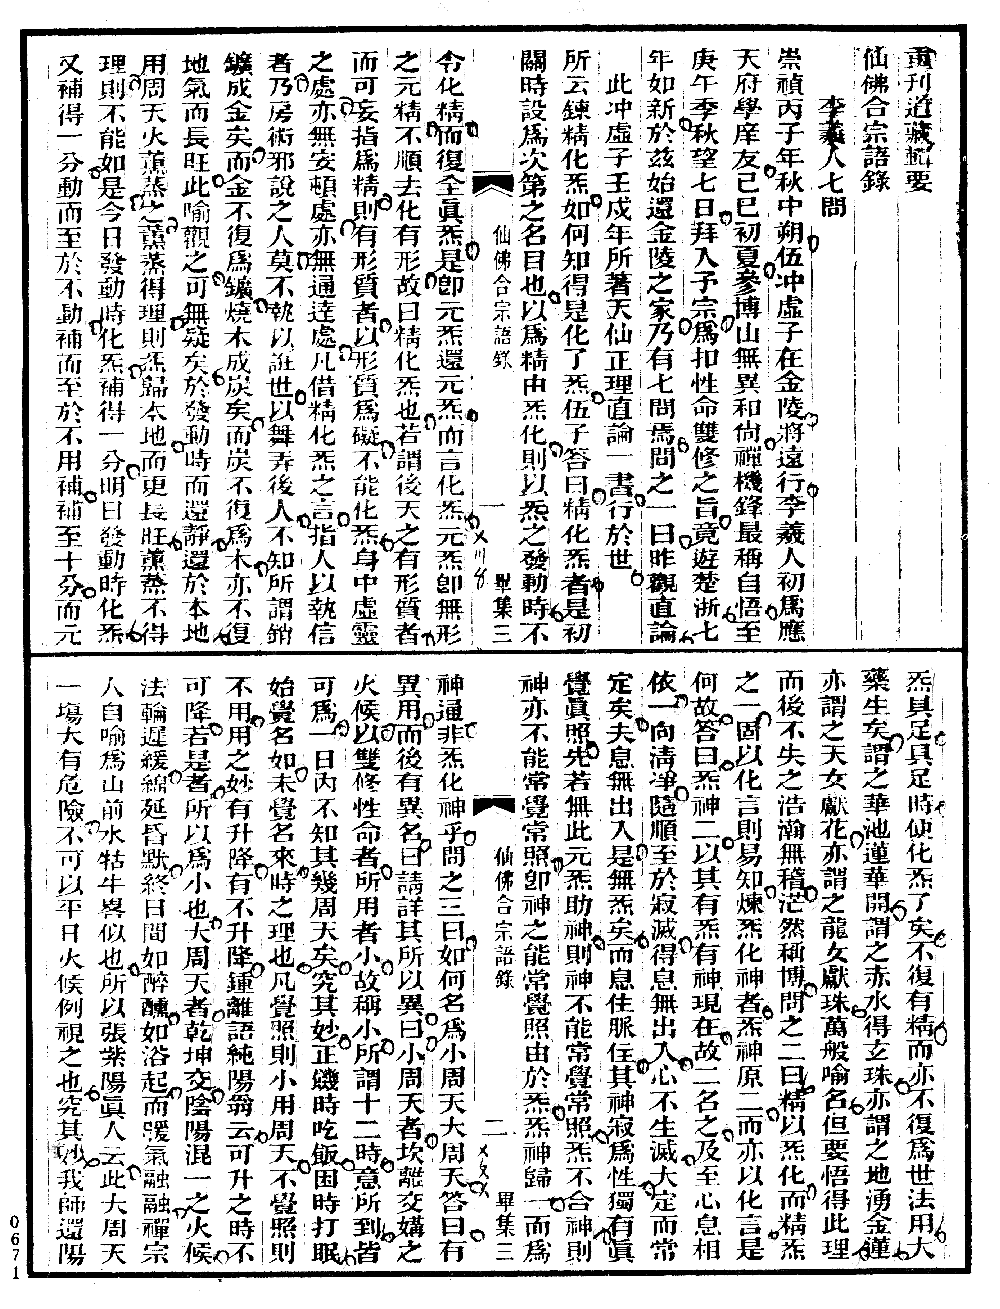 重刊道藏輯要
仙佛合宗語錄
李羲人七問
崇禎丙子年秋中朔伍冲虛子在金陵將遠行李羲人初爲應
天府學庠友己巳初夏參博山無異和尙禪機鋒最稱自悟至
庚午季秋望七日拜入予宗爲扣性命雙修之旨竟遊楚浙七
年如新於兹始還金陵之家乃有七問焉問之一曰昨觀直論
此冲虛子壬戍年所著天仙正理直論一書行於世
所云鍊精化炁如何知得是化了炁伍子答曰精化炁者是初
關時設爲次第之名目也以爲精由炁化則以炁之發動時不
仙佛合宗語錄
一
畢集三
令化精而復全眞炁是卽元炁還元炁而言化炁元炁卽無形
之元精不順去化有形故曰精化炁也若謂後天之有形質者
而可妄指爲精則有形質者以形質爲礙不能化炁身中虛靈
之處亦無安頓處亦無通達處凡借精化炁之言指人以執信
者乃房術邪說之人莫不執以誑世以舞弄後人不知所謂銷
鑛成金矣而金不復爲鑛燒木成炭矣而炭不復爲木亦不復
地氣而長旺此喻觀之可無疑矣於發動時而還靜還於本地
用周天火薰蒸之薰蒸得理則炁歸本地而更長旺薰蒸不得
理則不能如是今日發動時化炁補得一分明日發動時化炁
又補得一分動而至於不動補而至於不用補補至十分而元
炁具足具足時使化炁了矣不復有精而亦不復爲世法用大
藥生矣謂之華池蓮華開謂之赤水得玄珠亦謂之地湧金蓮
亦謂之天女獻花亦謂之龍女獻珠萬般喻名但要悟得此理
而後不失之浩瀚無稽茫然稱博問之二曰精以炁化而精炁
之一固以化言則易知煉炁化神者炁神原二而亦以化言是
何故答曰炁神二以其有炁有神現在故二名之及至心息相
依一向淸凈隨順至於寂滅得息無出入心不生滅大定而常
定矣夫息無出入是無炁矣而息住脈住其神寂爲性獨有眞
覺眞照先若無此元炁助神則神不能常覺常照炁不合神則
神亦不能常覺常照卽神之能常覺照由於炁炁神歸一而爲
仙佛合宗語錄
二
畢集三
神通非炁化神乎問之三曰如何名爲小周天大周天答曰有
異用而後有異名曰請詳其所以異曰小周天者坎離交媾之
火候以雙修性命者所用者小故稱小所謂十二時意所到皆
可爲一日內不知其幾周天矣究其妙正饑時吃飯困時打眠
始覺名如未覺名來時之理也凡覺照則小用周天不覺照則
不用用之妙有升降有不升降鍾離語純陽翁云可升之時不
可降若是者所以爲小也大周天者乾坤交陰陽混一之火候
法輪遲緩綿延昏默終日間如醉醺如浴起而暖氣融融禪宗
人自喻爲山前水牯牛畧似也所以張紫陽眞人云此大周天
一塲大有危險不可以平日火候例視之也究其妙我師還陽
0671